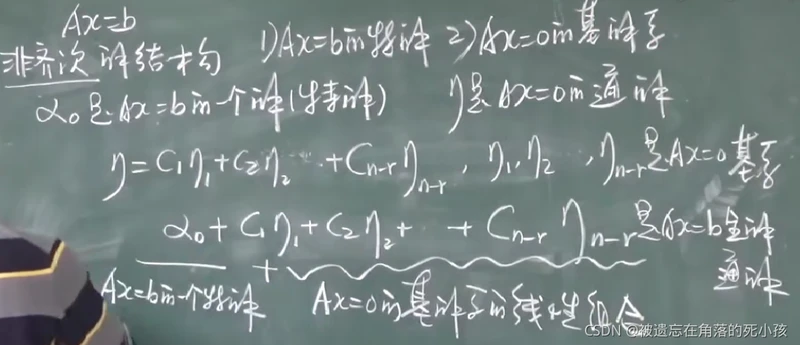 Ax=b
非齐次解结构 1)Ax=b的特解 2)Ax=0的基础解系
α₀是Ax=b的一个解(特解) η是Ax=0的通解
η=C₁η₁+C₂η₂ +Cₙ₋ᵣηₙ₋ᵣ, η₁,η₂ ,ηₙ₋ᵣ是Ax=0基系
α₀+C₁η₁+C₂η₂+ +Cₙ₋ᵣηₙ₋ᵣ是Ax=b全部解
+ 通解
Ax=b的一个特解 Ax=0的基解系的线性组合
CSDN @被遗忘在角落的死小孩